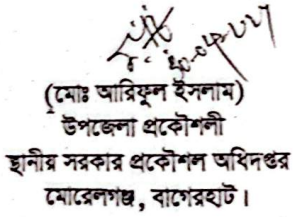 (মোঃ আরিফুল ইসলাম)
উপজেলা প্রকৌশলী
স্থানীয় সরকার প্রকৌশল অধিদপ্তর
মোরেলগঞ্জ, বাগেরহাট।